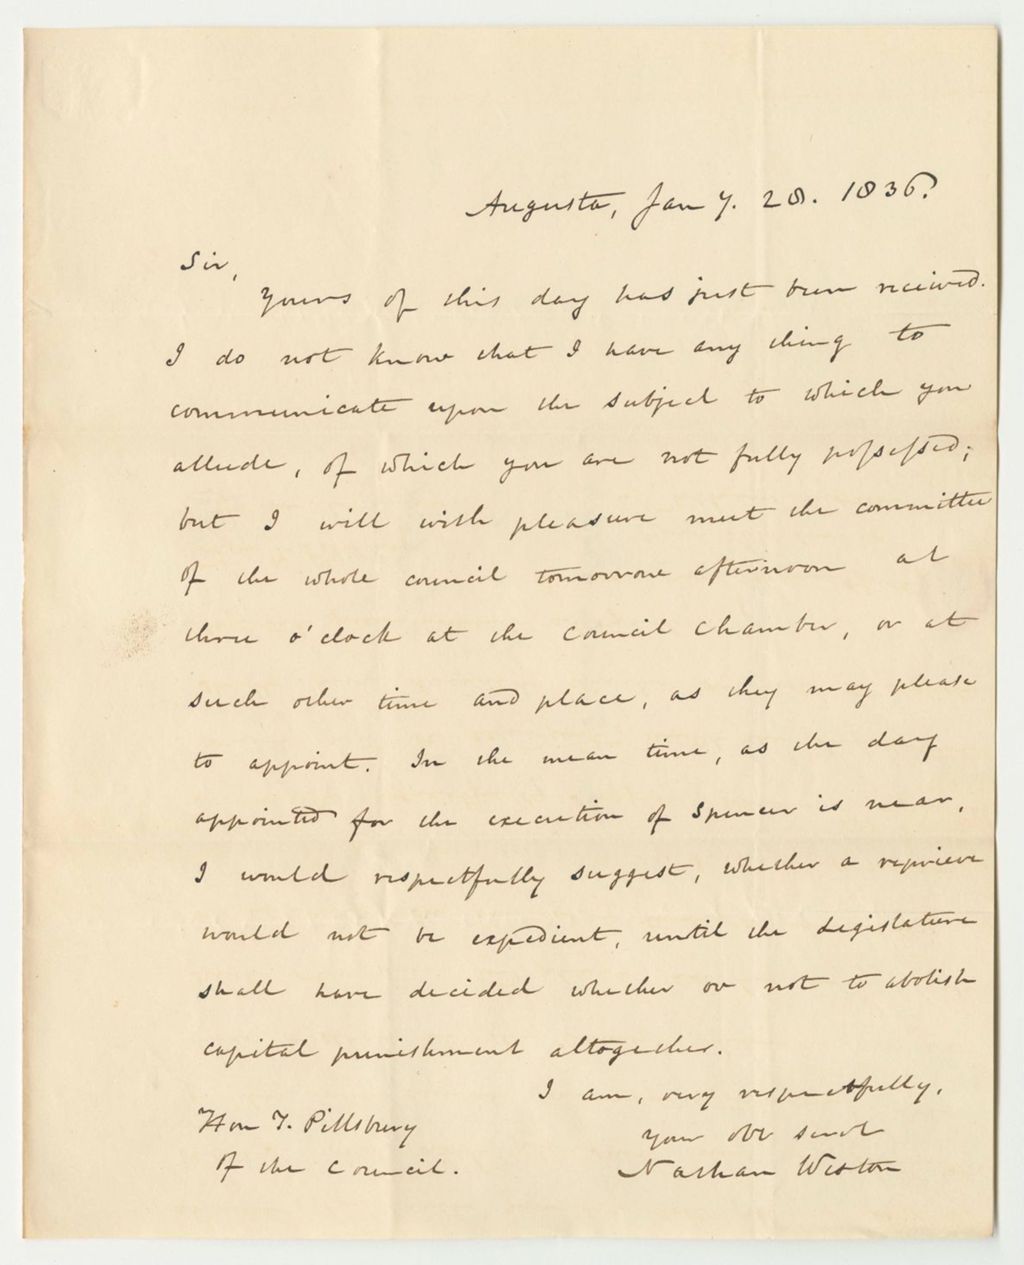 Augusta, Jany. 28. 1836.
Sir,
Yours of this day has just been received.
I do not know that I have any thing to
communicate upon the subject to which you
allude, of which you are not fully possessed;
but I will with pleasure meet the committee
of the whole council tomorrow afternoon at
three o'clock at the Council Chamber, or at
such other time and place, as they may please
to appoint. In the mean time, as the day
appointed for the execution of Spencer is near,
I would respectfully suggest, whether a reprieve
would not be expedient, until the Legislature
shall have decided whether or not to abolish
capital punishment altogether.
I am, very respectfully,
Hon T. Pillsbury
your obt servt
of the Council.
Nathan Weston